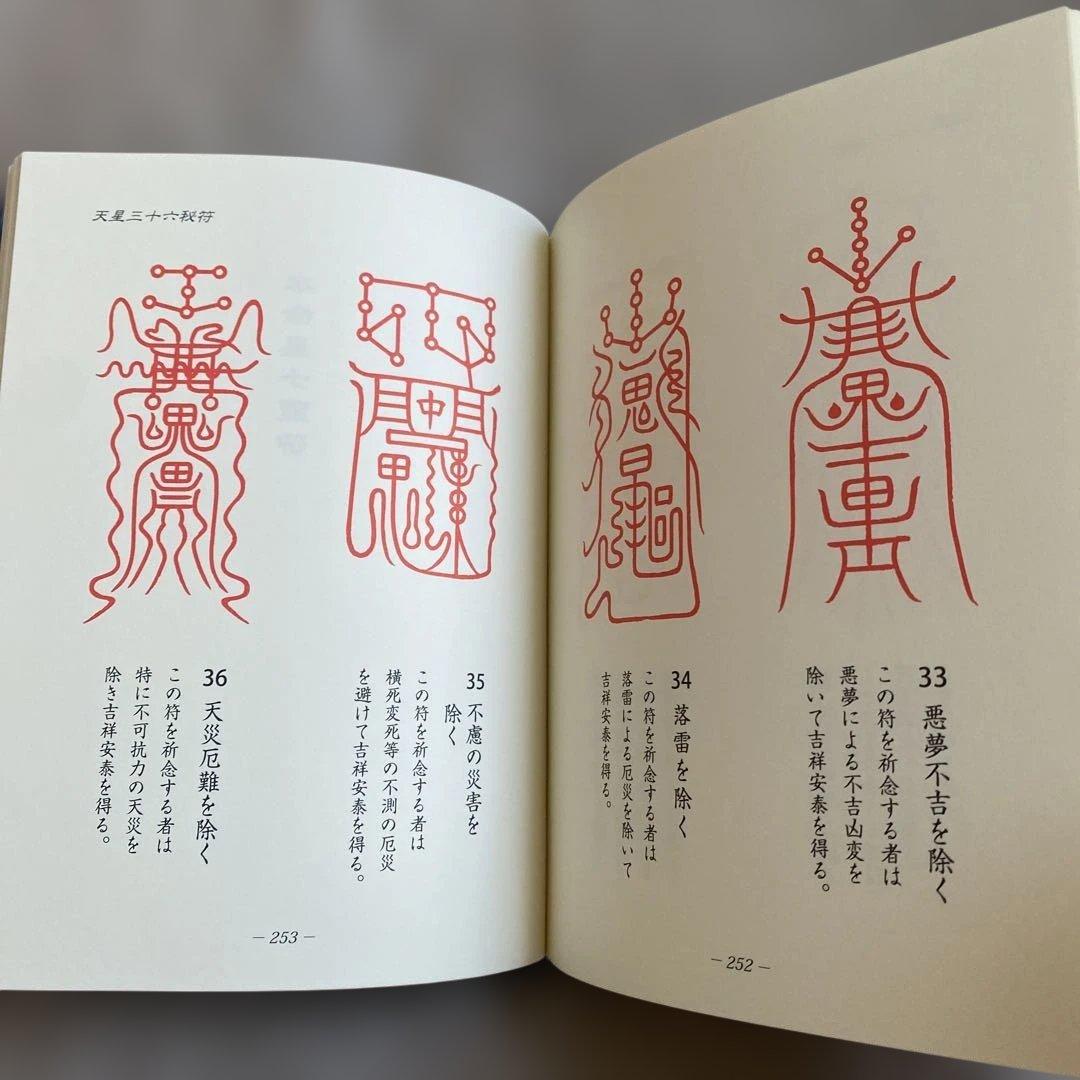 33 悪夢不吉を除く
この符を祈念する者は
悪夢による不吉凶変を
除いて吉祥安泰を得る。
34 落雷を除く
この符を祈念する者は
落雷による厄災を除いて
吉祥安泰を得る。
— 252 —
天星三十六秘符
35 不慮の災害を
除く
この符を祈念する者は
横死変死等の不測の厄災
を避けて吉祥安泰を得る。
36 天災厄難を除く
この符を祈念する者は
特に不可抗力の天災を
除き吉祥安泰を得る。
— 253 —